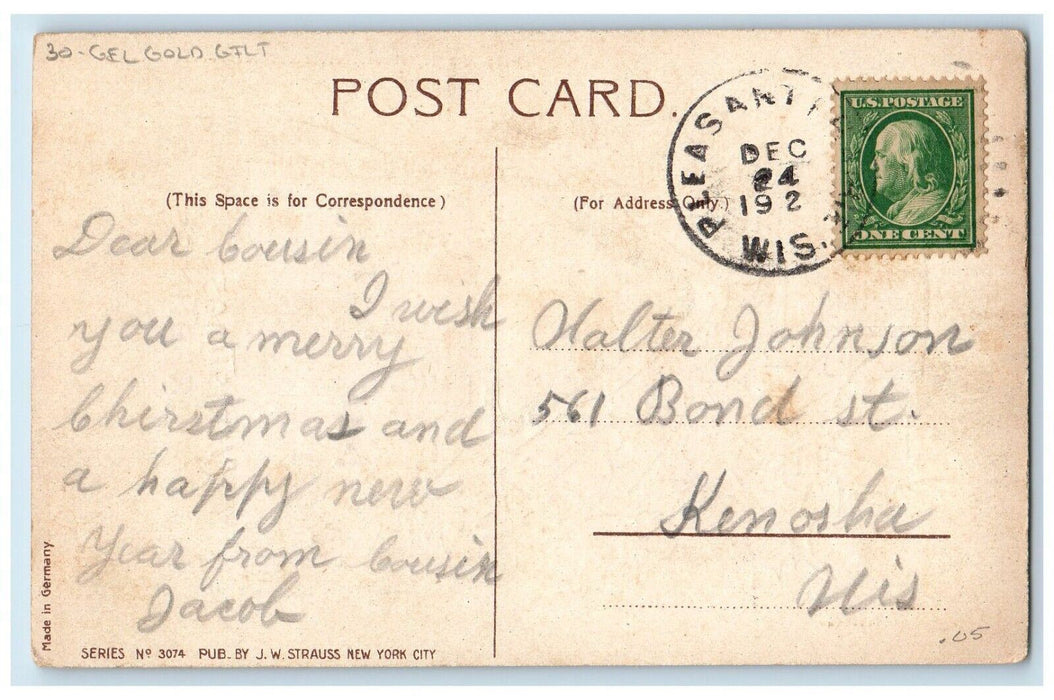 30-GEL GOLD GILT
POST CARD.
PLEASANT
DEC
24
192
WIS.
U.S. POSTAGE
ONE CENT
(This Space is for Correspondence)
(For Address Only.)
Dear Cousin
I wish
you a merry
Chirstmas and
a happy new
Year from Cousin
Jacob
Walter Johnson
561 Bond st.
Kenosha
Wis
.05
Made in Germany
SERIES Nº 3074 PUB. BY J. W. STRAUSS NEW YORK CITY